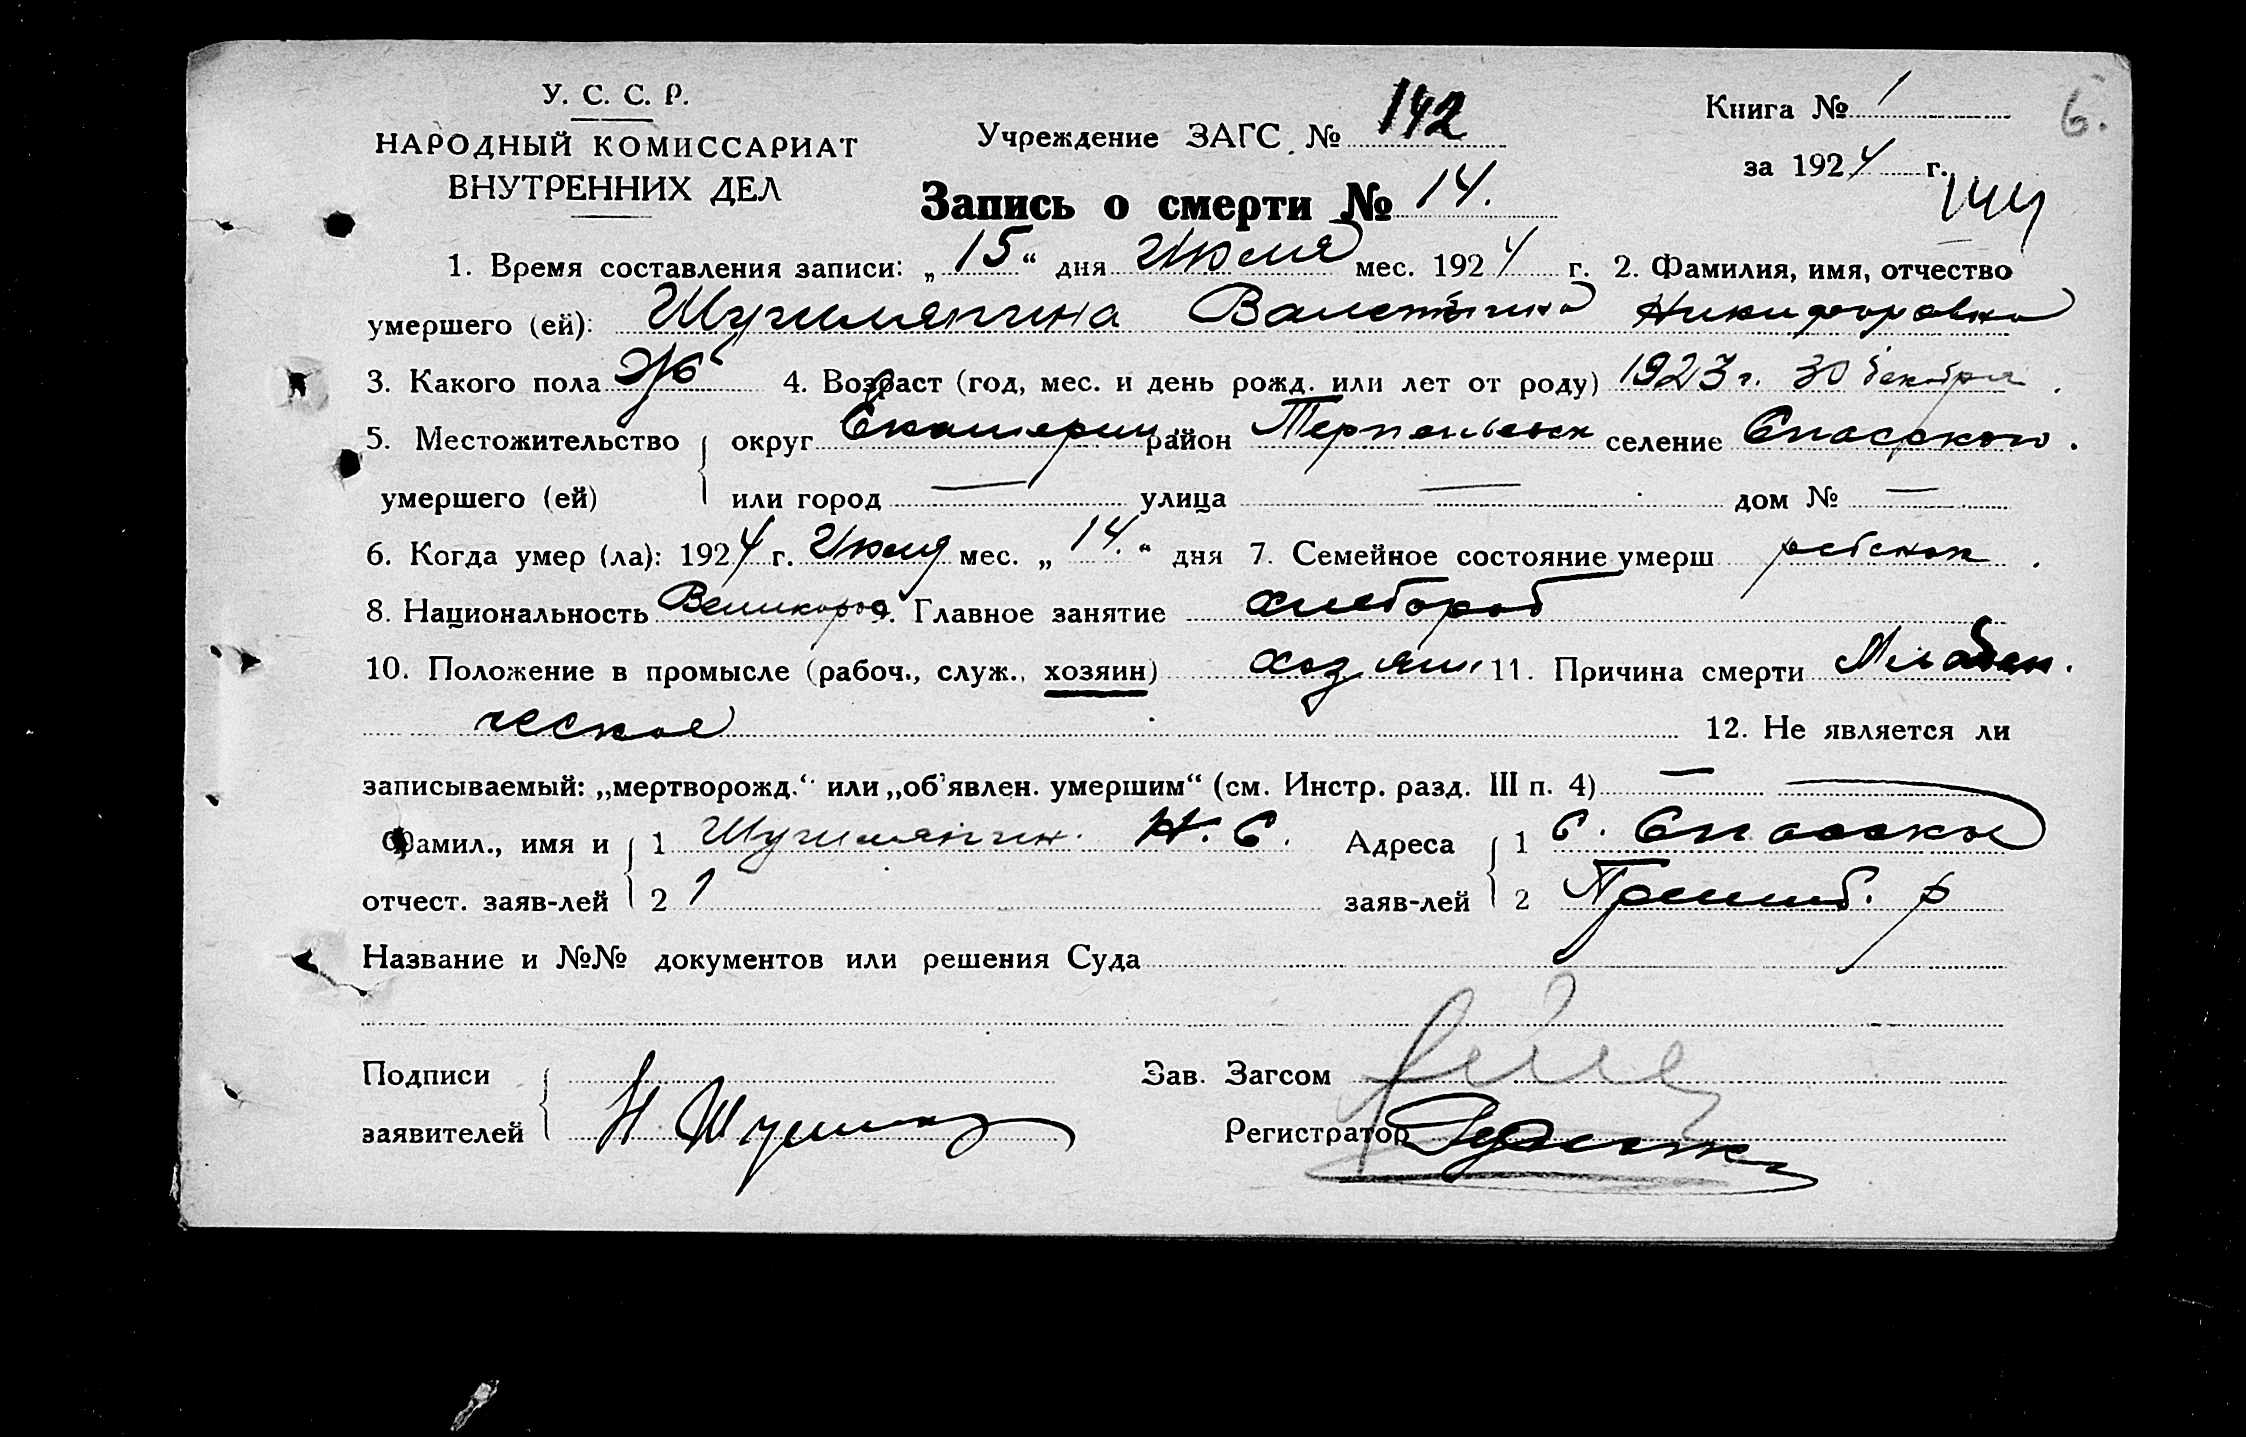 У. С. С. Р.
НАРОДНЫЙ КОМИССАРИАТ
ВНУТРЕННИХ ДЕЛ
Учреждение ЗАГС № 142
Книга № 1
6.
за 1924 г.
144
Запись о смерти № 14.
1. Время составления записи: „15“ дня Июля мес. 1924 г. 2. Фамилия, имя, отчество
умершего (ей): Валентина Никифоровна
3. Какого пола Ж 4. Возраст (год, мес. и день рожд. или лет от роду) 1923 г. 30 декабря.
5. Местожительство округ Екатерин район селение Спасского.
умершего (ей) или город — улица — дом № —
6. Когда умер (ла): 1924 г. Июля мес. „14.“ дня 7. Семейное состояние умерш ребенок.
8. Национальность Великорос 9. Главное занятие хлебороб
10. Положение в промысле (рабоч., служ., хозяин) хозяин 11. Причина смерти Младен.
ческое 12. Не является ли
записываемый: „мертворожд.“ или „об'явлен. умершим“ (см. Инстр. разд. III п. 4) — —
Фамил., имя и 1 Н. С. Адреса 1 с. Спасское
отчест. заяв-лей 2 заяв-лей 2 р
Название и №№ документов или решения Суда
Подписи Зав. Загсом
заявителей Н Регистратор